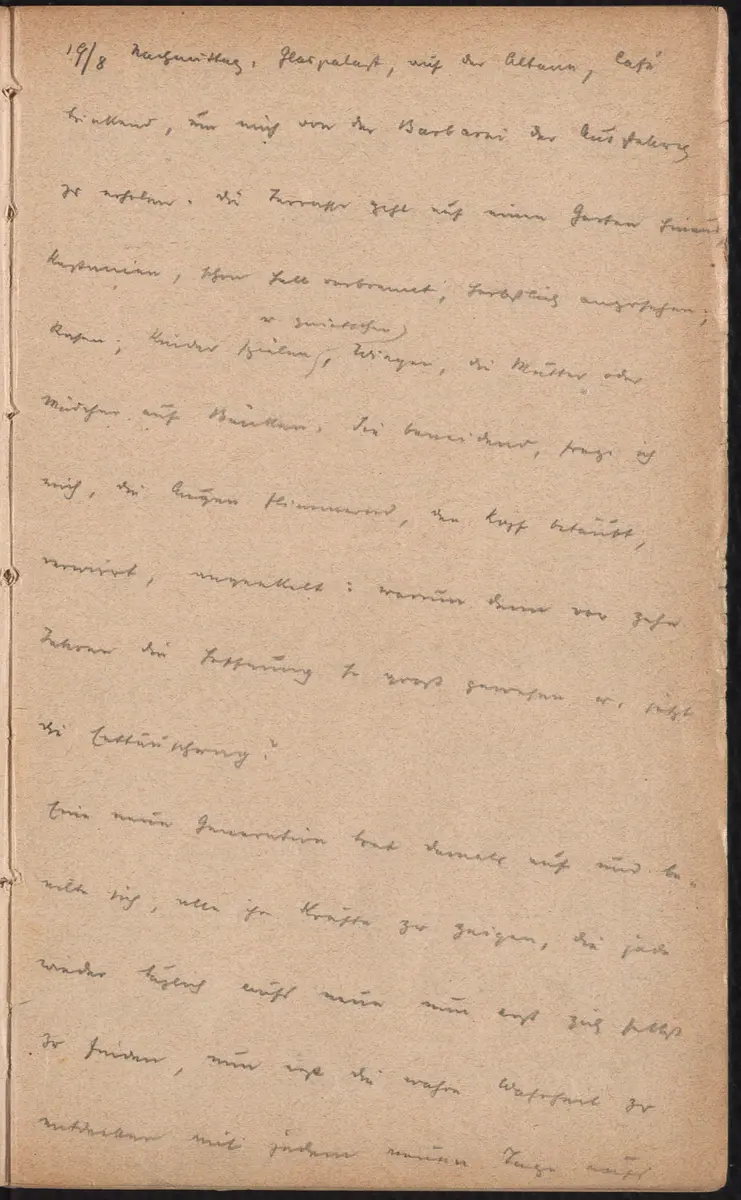 19/8 Nachmittag, Glaspalast, auf der Altane, Café
trinkend, um mich von der Barbarei der Ausstellung
zu erholen. Die Terrasse geht auf einen Garten hinaus,
Kastanien, schon halb verbrannt, herbstlich anzusehen;
u quietschen
Rasen; Kinder spielen, Wiegen, die Mütter oder
Mädchen auf Bänken. Sie beneidend, frage ich
mich, die Augen flimmernd, den Kopf betäubt,
verwirrt, angeekelt: warum denn vor zehn
Jahren die Hoffnung so groß gewesen u. jetzt
die Enttäuschung?
Eine neue Generation trat damals auf und be-
eilte sich, alle ihre Kräfte zu zeigen, die jede
wieder täglich aufs neue nun erst sich selbst
zu finden, nun erst die wahre Wahrheit zu
entdecken mit jedem neuen Tage aufs